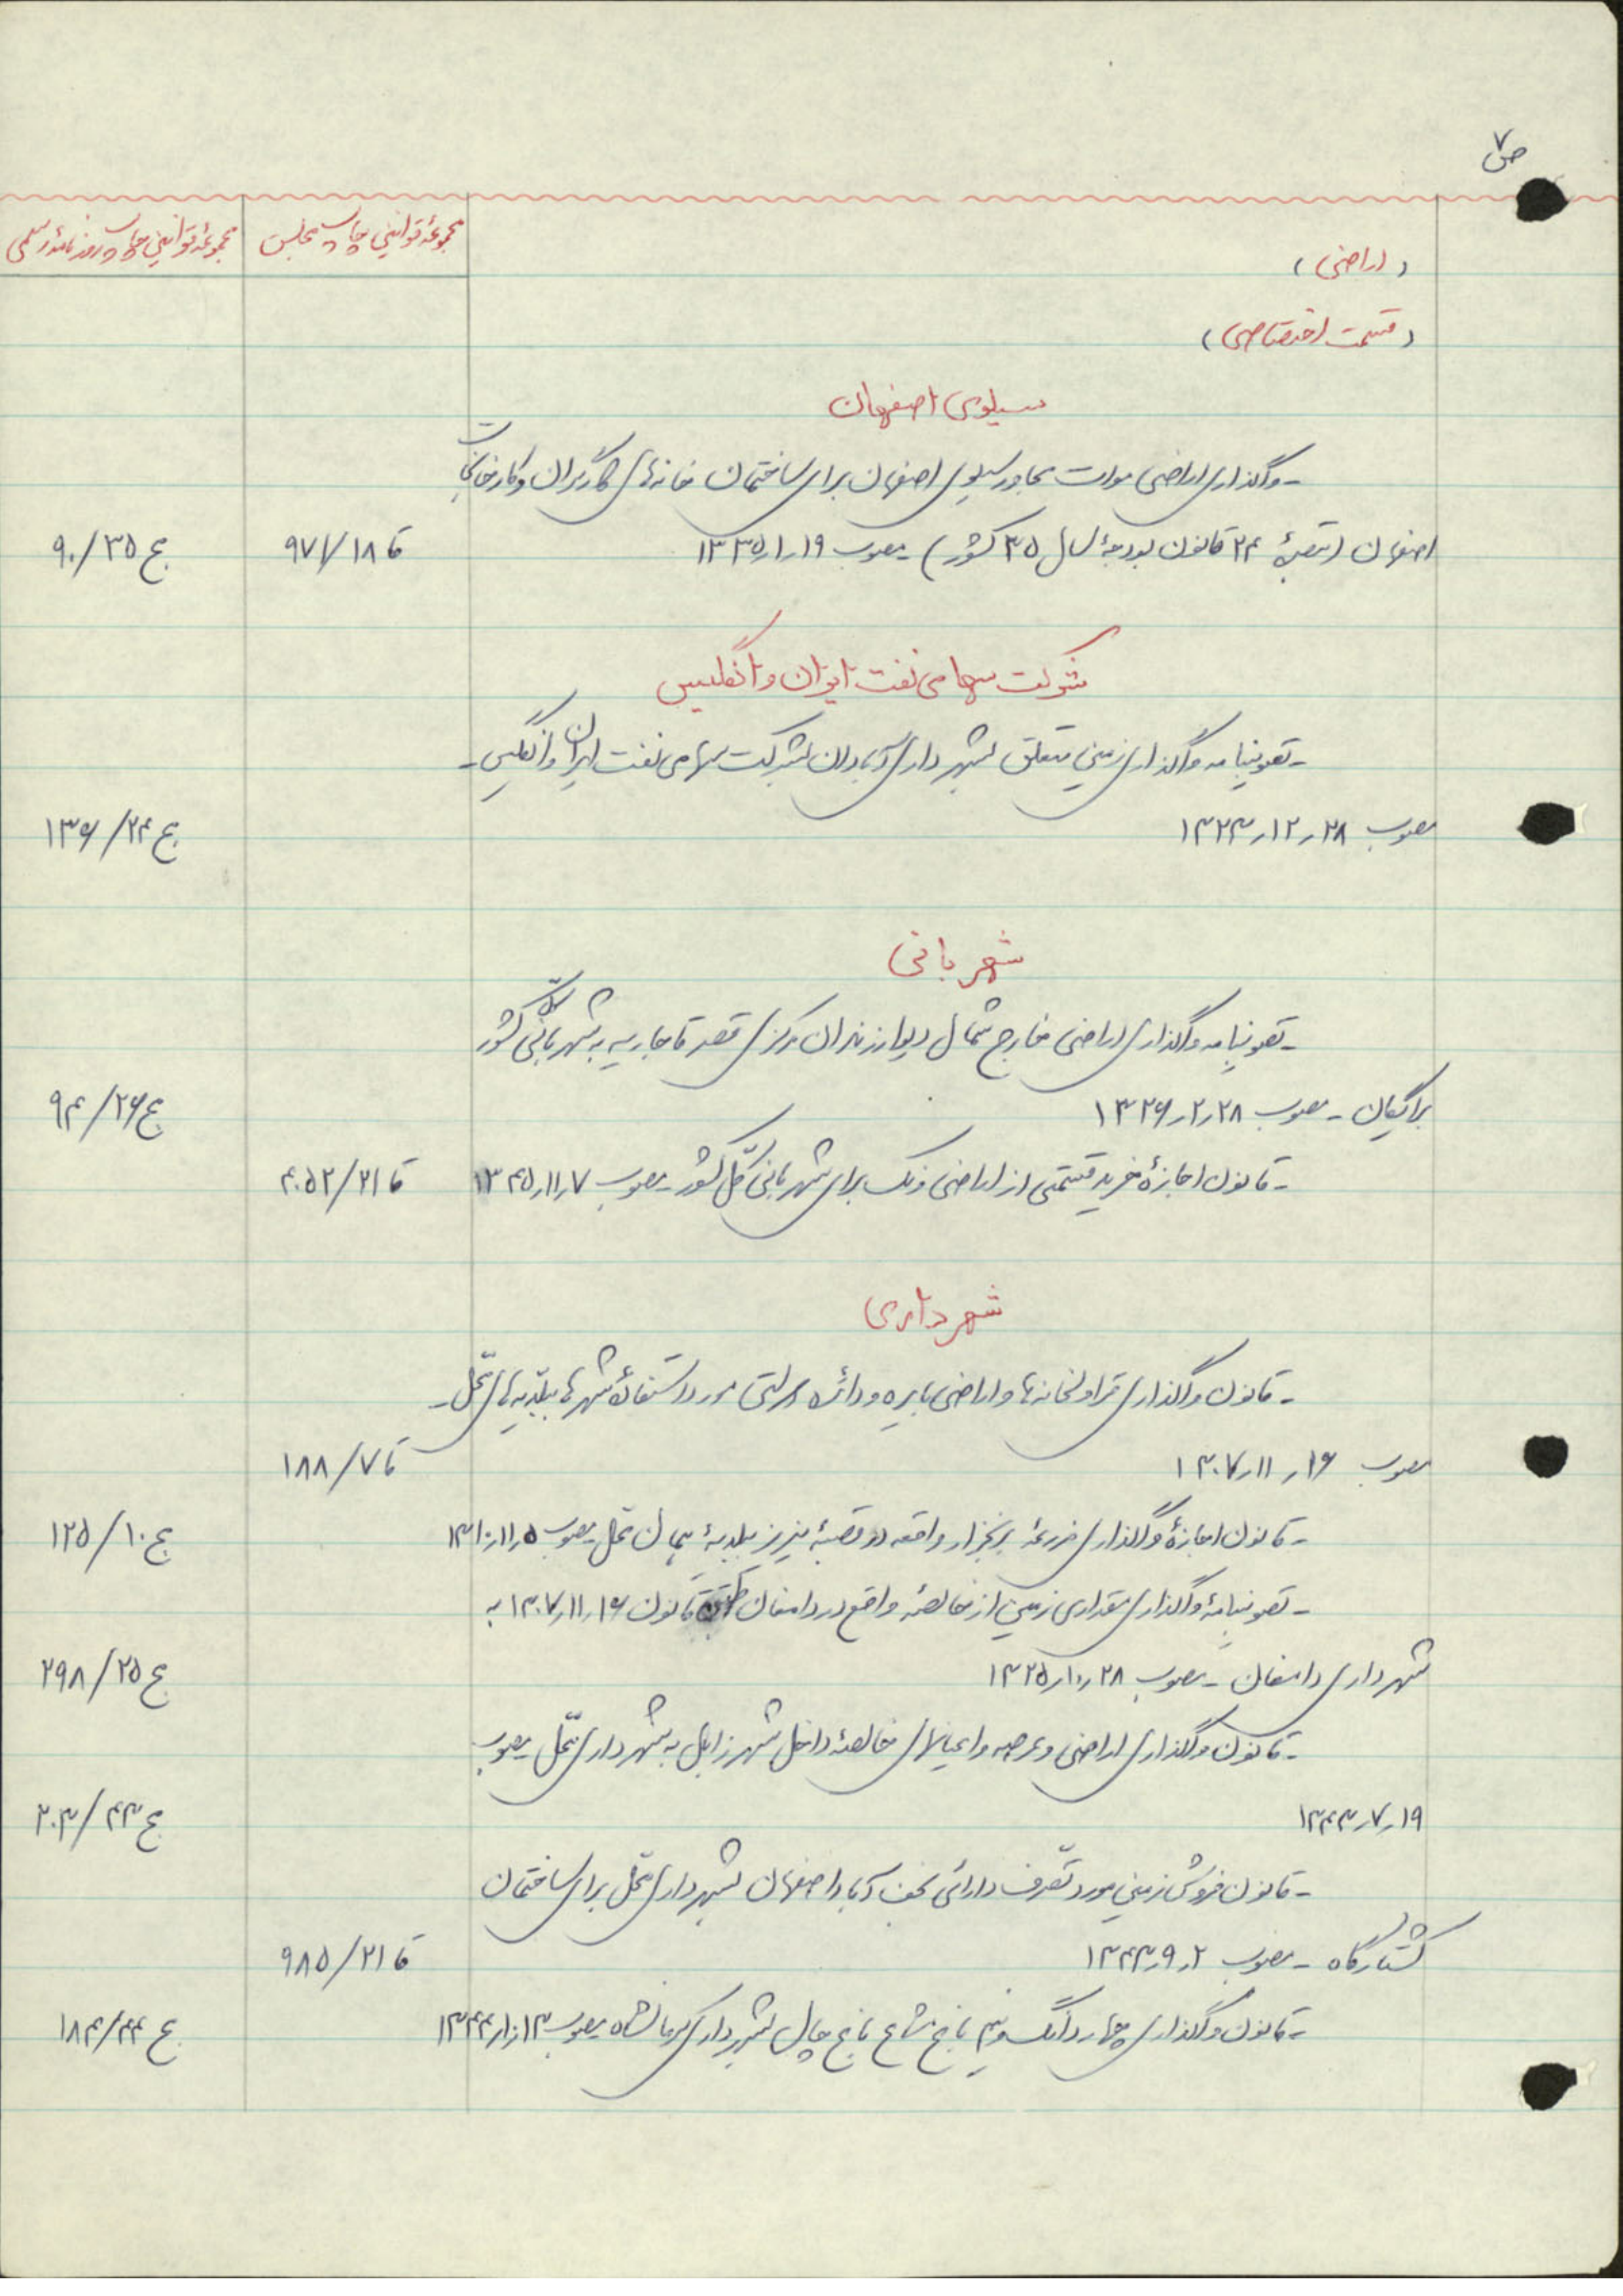 ص ۷
مجموعهٔ قوانین چاپ مجلس
مجموعهٔ قوانین چاپ روزنامهٔ رسمی
(اراضی)
(قسمت اختصاصی)
سیلوی اصفهان
- واگذاری اراضی موات مجاور سیلوی اصفهان برای ساختمان خانه‌های کارگران و کارخانجات
اصفهان (تبصرهٔ ۲۴ قانون بودجهٔ سال ۳۵ کشور) - مصوب ۱۹ر۱ر۱۳۳۵ قا ۱۸/۹۷۱ ج ۳۵/۹۰
شرکت سهامی نفت ایران و انگلیس
- تصویبنامه واگذاری زمین متعلق بشهرداری آبادان بشرکت سهامی نفت ایران و انگلیس -
مصوب ۲۸ر۱۲ر۱۳۲۳ ج ۲۴/۱۳۶
شهربانی
- تصویبنامه واگذاری اراضی خارج شمال دیوار زندان مرکزی قصر قاجاریه به شهربانی کلّ کشور
برایگان - مصوب ۲۸ر۲ر۱۳۲۶ ج ۲۶/۹۴
- قانون اجازهٔ خرید قسمتی از اراضی ونک برای شهربانی کلّ کشور - مصوب ۷ر۱۱ر۱۳۴۵ قا ۲۱/۴۰۵۲
شهرداری
- قانون واگذاری قراولخانه‌ها و اراضی بایره و دائره دولتی مورد استفادهٔ شهرها ببلدیه‌های محلّ -
مصوب ۱۶ر۱۱ر۱۳۰۷ قا ۷/۱۸۸
- قانون اجازهٔ واگذاری مزرعهٔ برنجزار واقعه در قصبهٔ نیریز ببلدیهٔ همان محلّ - مصوب ۵ر۱۱ر۱۳۱۰ ج ۱۰/۱۲۵
- تصویبنامهٔ واگذاری مقداری زمین از خالصهٔ واقع در دامغان قانون ۱۶ر۱۱ر۱۳۰۷ به
شهرداری دامغان - مصوب ۲۸ر۱۰ر۱۳۲۵ ج ۲۵/۲۹۸
- قانون واگذاری اراضی و عرصه و اعیانی خالصهٔ داخل شهر زابل به شهرداری محلّ - مصوب
۱۹ر۷ر۱۳۴۳ ج ۴۳/۲۰۳
- قانون فروش زمین مورد تصرّف دارائی نجف آباد اصفهان بشهرداری محلّ برای ساختمان
کشتارگاه - مصوب ۲ر۹ر۱۳۴۳ قا ۲۱/۹۸۵
- قانون واگذاری چهار دانگ و نیم باغ مشاع باغ چال بشهرداری کرمانشاه - مصوب ۱۳ر۱۰ر۱۳۴۴ ج ۴۴/۱۸۴